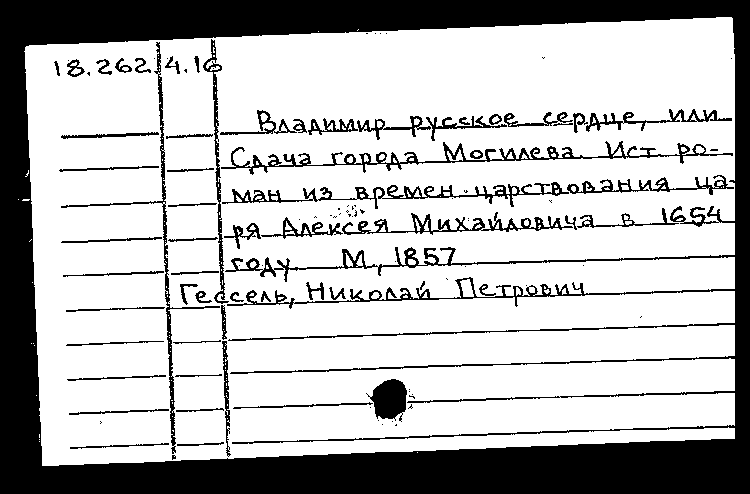 18.262.4.16
Владимир русское сердце, или
Сдача города Могилева. Ист ро-
ман из времен царствования ца-
ря Алексея Михайловича в 1654
году М., 1857
Гессель, Николай Петрович